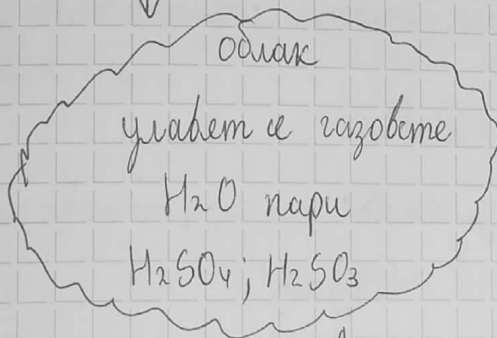 облак
улавят се газовете
H₂O пари
H₂SO₄; H₂SO₃